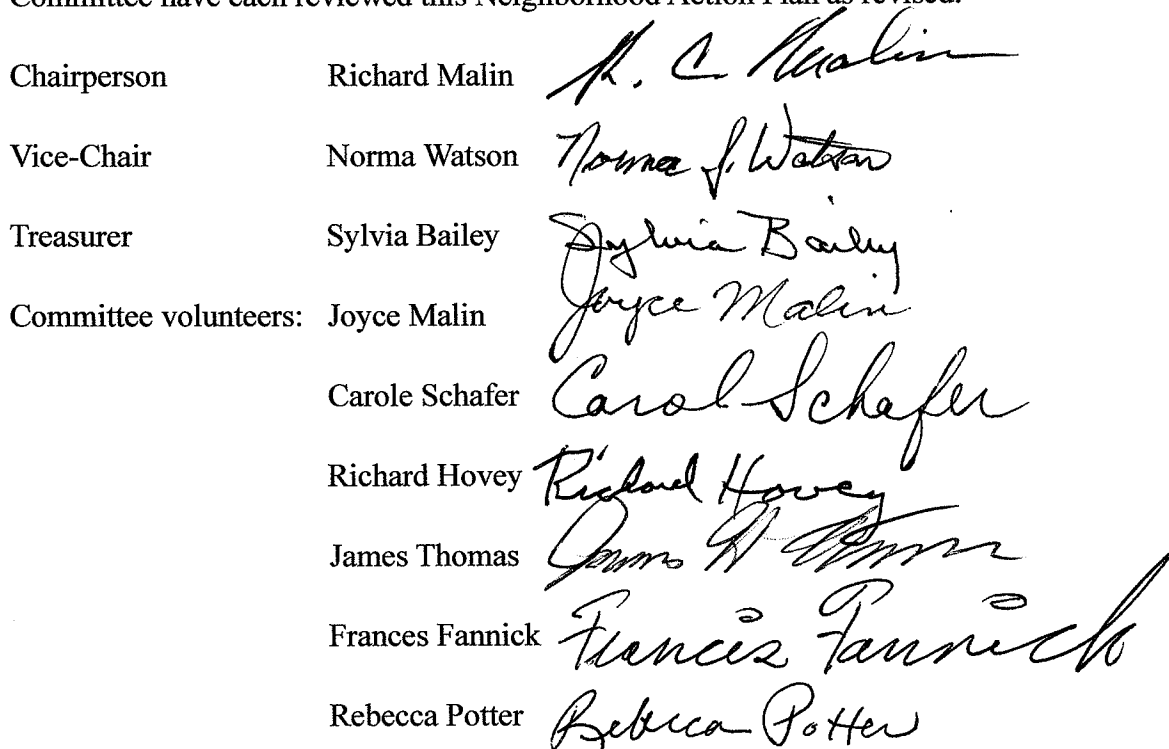 Committee have each reviewed this Neighborhood Action Plan as revised.
Chairperson Richard Malin R. C. Malin
Vice-Chair Norma Watson Norma J. Watson
Treasurer Sylvia Bailey Sylvia Bailey
Committee volunteers: Joyce Malin Joyce Malin
Carole Schafer Carol Schafer
Richard Hovey Richard Hovey
James Thomas James H Thomas
Frances Fannick Francis Fannick
Rebecca Potter Rebecca Potter